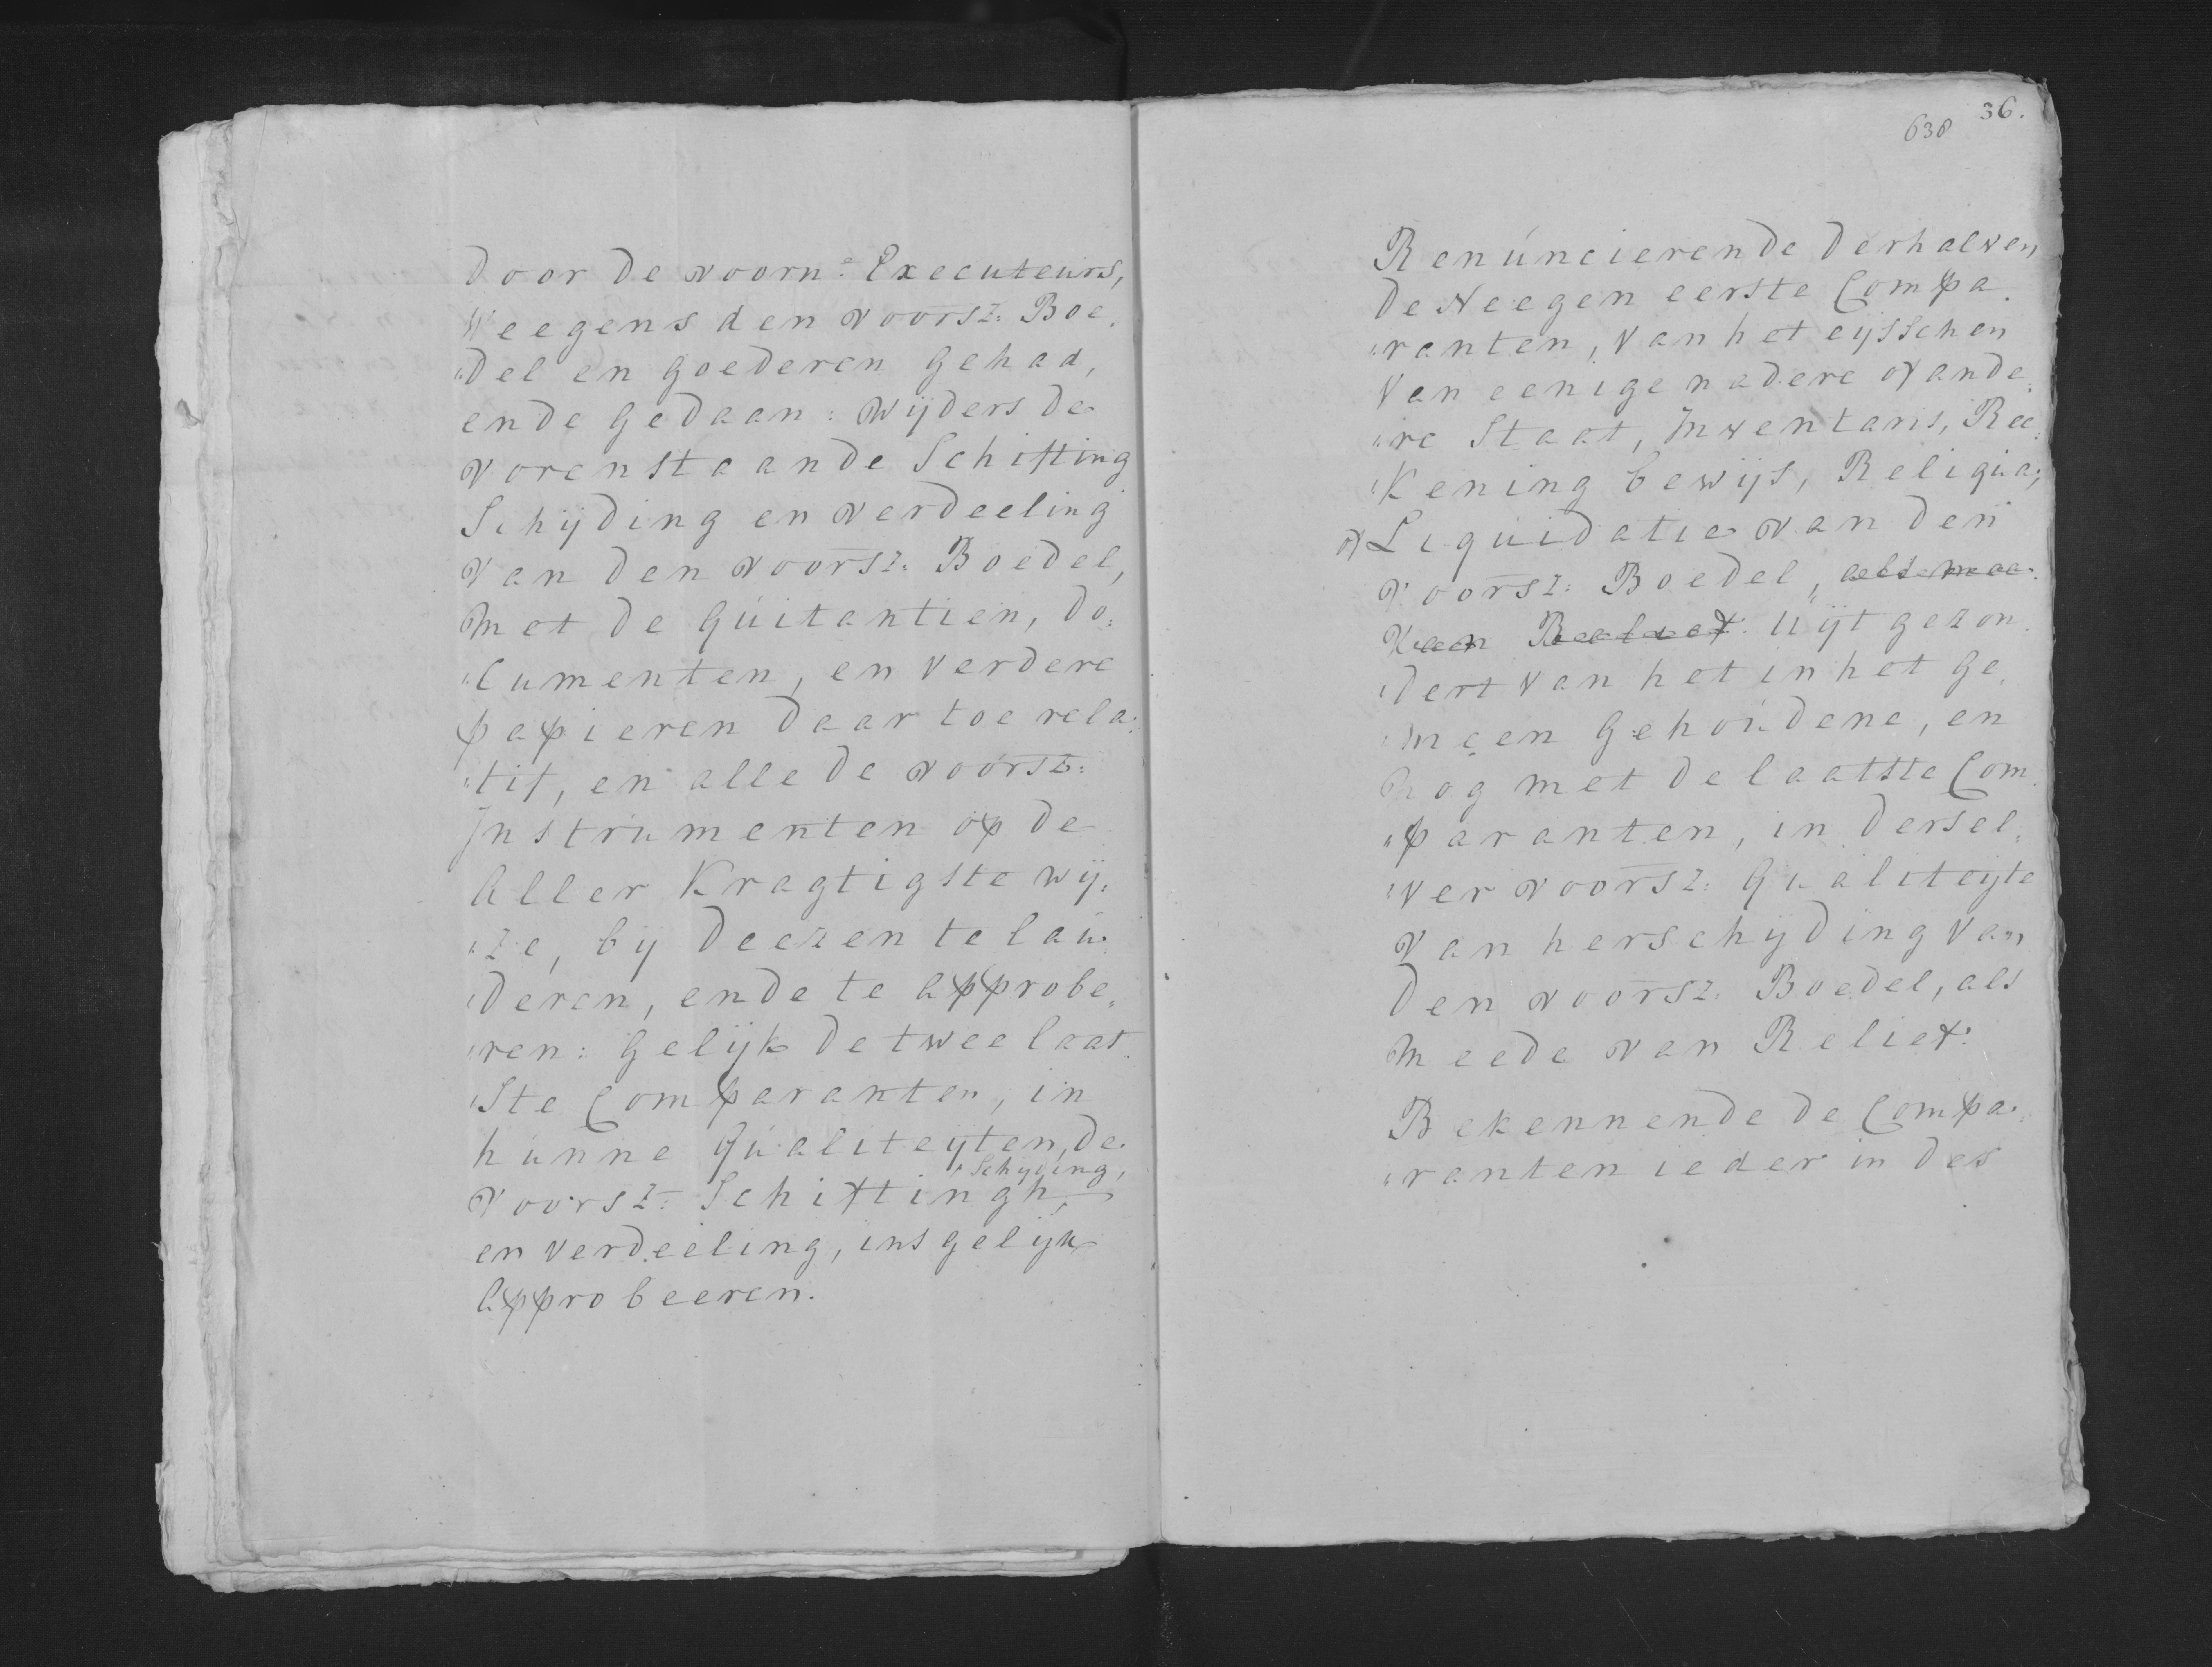 door de voorn:e Executeurs,
Weegens den voorsz: Boe,
"del en goederen gehad,
ende gedaan: wijders de
vorenstaande Schifting
Schijding en verdeeling
van den voorsz: Boedel,
met de Quitantien, do:
"cumenten, en verdere
papieren daar toe rela:
"tif, en alle de voorsz:
Instrumenten op de
aller kragtigste wij:
"ze, bij deezen te lau:
"deren, ende te approbe,
"ren: gelijk de twee laat
"ste Comparanten, in
hunne Qualiteijten, de
Schijding,
voorsz: Schiftingh,
en verdeeling, insgelijk
approbeeren.
638 36.
Renuncierende derhalven
de Neegen eerste Compa.
"ranten, van het eijsschen
van eenige nadere of ande:
"re Staat, Inventaris, Ree:
"kening bewijs, Reliqua,
of Liquidatie van den
voorsz: Boedel, als mee
van Relief: Uijtgezon.
"dert van het in het ge,
"meen gehoudene, en
nog met de laatste Com.
"paranten, in dersel,
"ver voorsz: Qualiteijte
van herschijding van
den voorsz: Boedel, als
meede van Relief:
Bekennende de Compa.
"ranten ieder in des